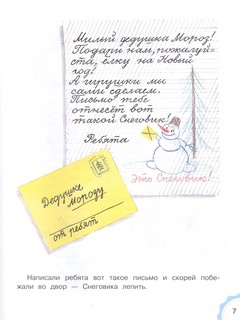 Милый дедушка Мороз!
Подари нам, пожалуй-
ста, ёлку на Новый
год!
А игрушки мы
сами сделаем.
Письмо тебе
отнесёт вот
такой Снеговик!
Ребята
Это Снеговик!
Дедушке
Морозу
от ребят
Написали ребята вот такое письмо и скорей побе-
жали во двор — Снеговика лепить.
7